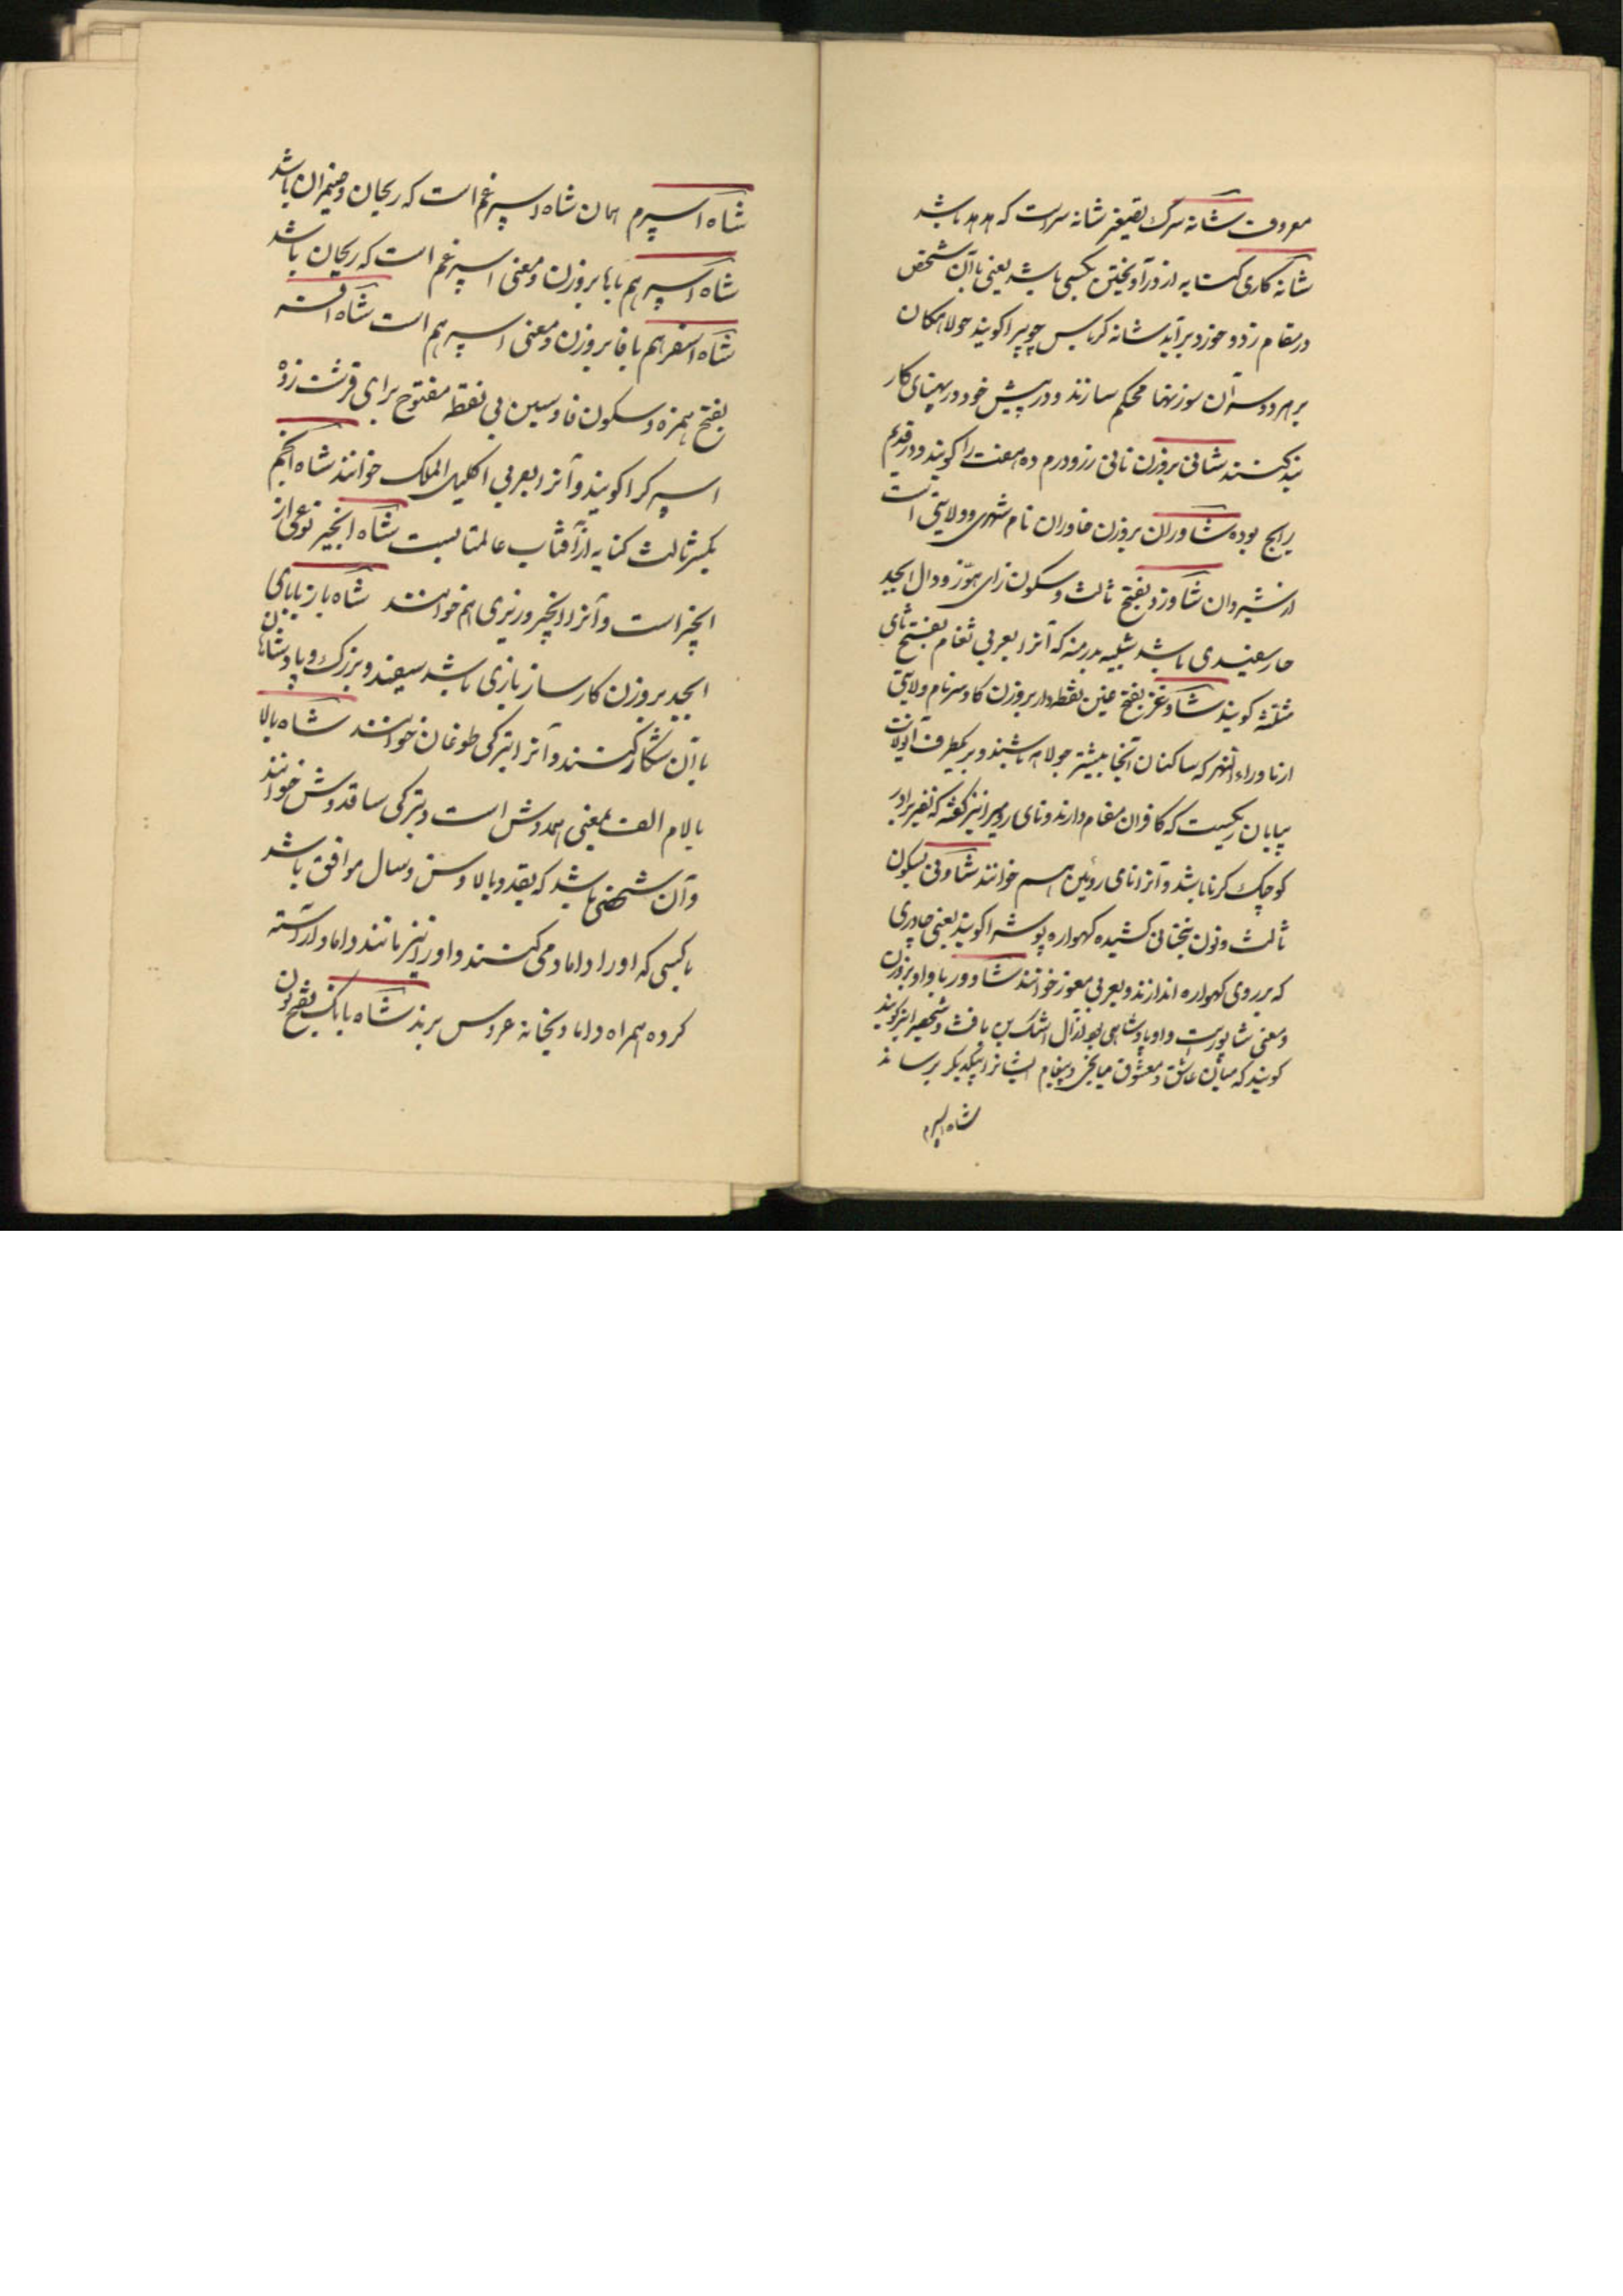 معروف شانه سرک بتصغیر شانه سرست که هدهد باشد
شانه کاری کنایه از درآویختن بکسی باشد یعنی باآن شخص
در مقام زد و خورد برآید شانه کرباس چوبیرا کویند جولاهکان
بر هر دو سر آن سوزنها محکم سازند و در پیش خود در پهنای کار
بند کنند شانی بروزن نانی زر و درم ده هفت را کویند و در قدیم
رایج بوده شاوران بروزن خاوران نام شهری و ولایتی است
از شیروان شاوزد بفتح ثالث و سکون زای هوّز و دال ابجد
خار سفیدی باشد شبیه بدرمنه که آنرا بعربی ثغام بفتح ثای
مثلثه کویند شاوغر بفتح غین نقطه دار بروزن کاوسر نام ولایتی
از ماوراء النهر که ساکنان آنجا بیشتر جولاهه باشند و بر یکطرف آنولایت
بیابان ریکیست که کافران مقام دارند و نای رومیرا نیز کفته که نفیر برادر
کوچک کرنا باشد و آنرا نای روئین هم خوانند شاونی بسکون
ثالث و نون بتحتانی کشیده کهواره پوش را کویند یعنی چادری
که بر روی کهواره اندازند و بعربی معوز خوانند شاوور با واو بروزن
و معنی شاپورست و او پادشاهی بود از آل اشک بن یافث و شخصیرا نیز کویند
کویند که میان عاشق و معشوق میانجی و پیغام ایشانرا بیکدیکر برساند
شاه اسپرم
شاه اسپرم همان شاه اسپرغم است که ریحان و ضیمران باشد
شاه اسپرهم باها بروزن و معنی اسپرغم است که ریحان باشد
شاه اسفرهم با فا بروزن و معنی اسپرهم است شاه افسر
بفتح همزه و سکون فا و سین بی نقطه مفتوح برای قرشت زده
اسپرک را کویند و آنرا بعربی اکلیل الملک خوانند شاه انجم
بکسر ثالث کنایه از آفتاب عالمتابست شاه انجیر نوعی از
انجیر است و آنرا انجیر وزیری هم خوانند شاه باز ببای
ابجد بروزن کارساز بازی باشد سفید و بزرک و پادشاهان
باآن شکار کنند و آنرا بترکی طوغان خوانند شاه بالا
بالام الف بمعنی همدوش است و بترکی ساقدوش خوانند
و آن شخصی باشد که بقد و بالا و سن و سال موافق باشد
باکسی که او را داماد می کنند و او را نیز مانند داماد آراسته
کرده همراه داماد بخانه عروس برند شاه بانک بفتح نون